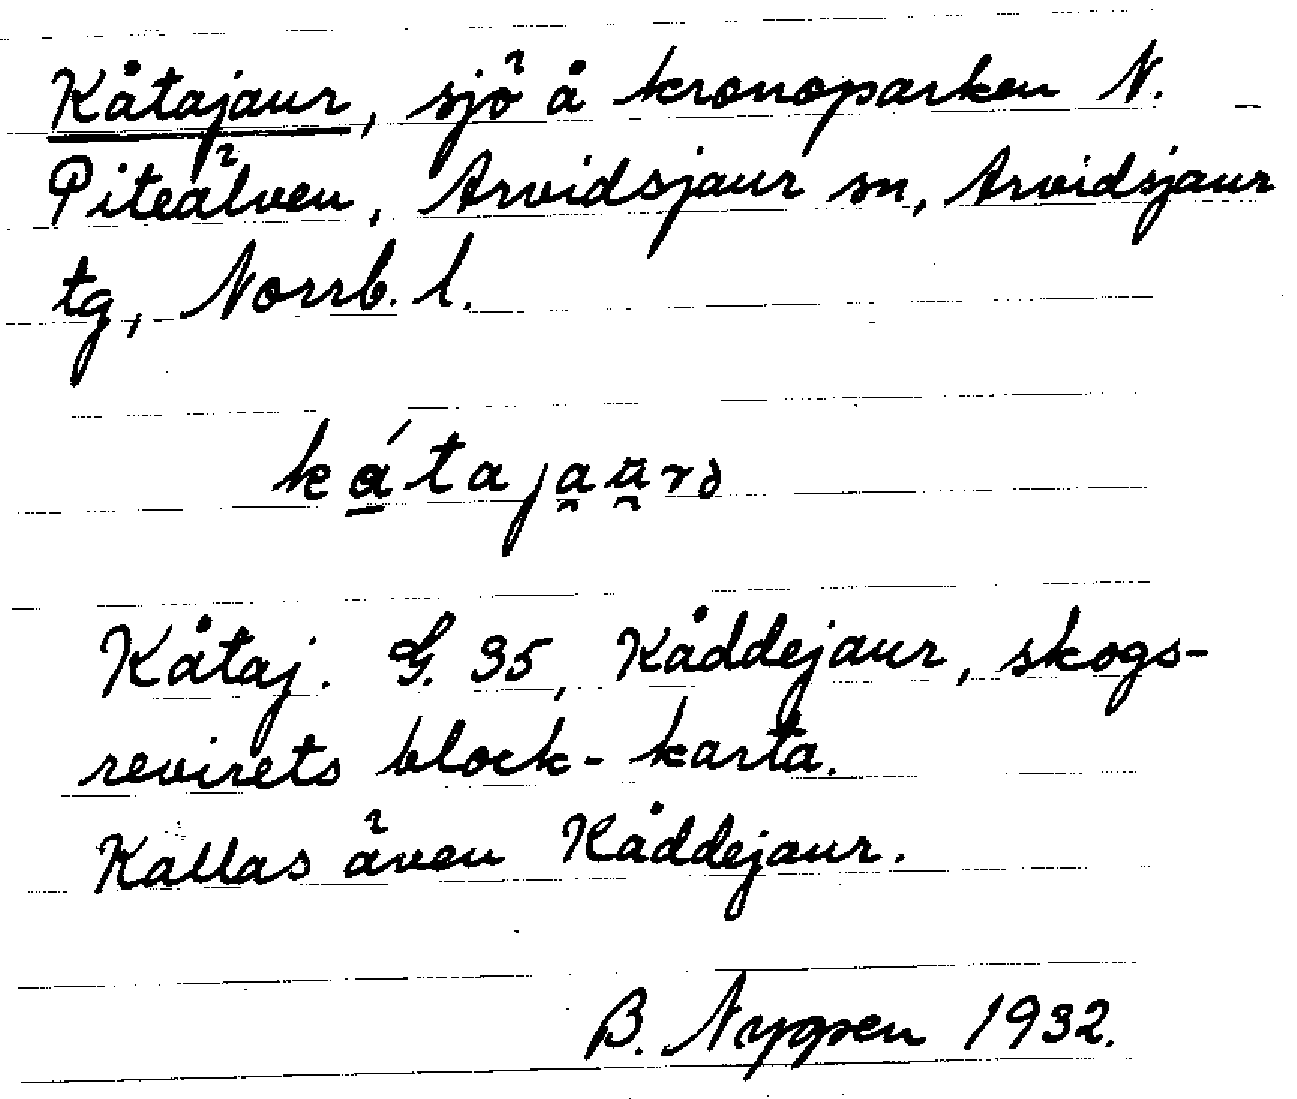 Kåtajaur, sjö å kronoparken N.
Piteälven, Arvidsjaur sn, Arvidsjaur
tg, Norrb. l.
Kåtaj. G. 35, Kåddejaur, skogs-
revirets block-karta.
Kallas även Kåddejaur.
B. Nygren 1932.